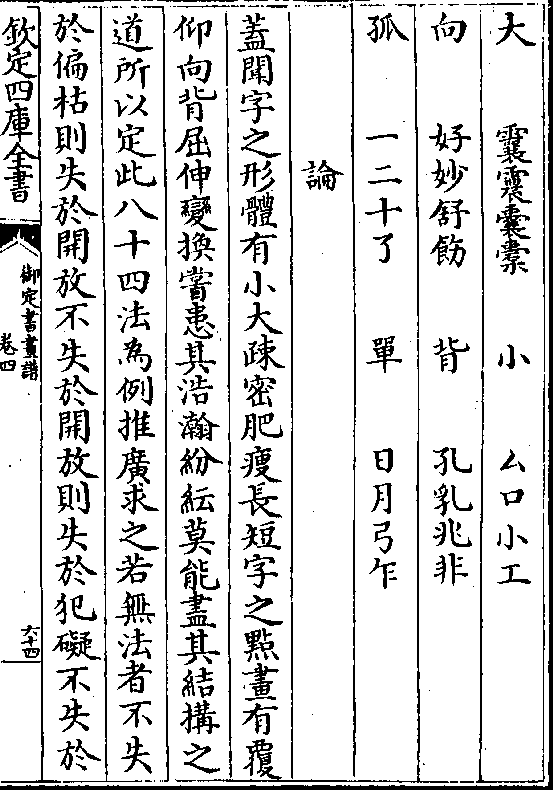 大　囊囊囊橐　小　厶口小工
向　好妙舒飭　背　孔乳兆非
孤　一二十了　單　日月弓乍
論
蓋聞字之形體有小大疎密肥瘦長短字之點畫有覆
仰向背屈伸變換嘗患其浩瀚紛紜莫能盡其結構之
道所以定此八十四法為例推廣求之若無法者不失
於偏枯則失於開放不失於開放則失於犯礙不失於
欽定四庫全書
御定書畫譜
卷四
六十四